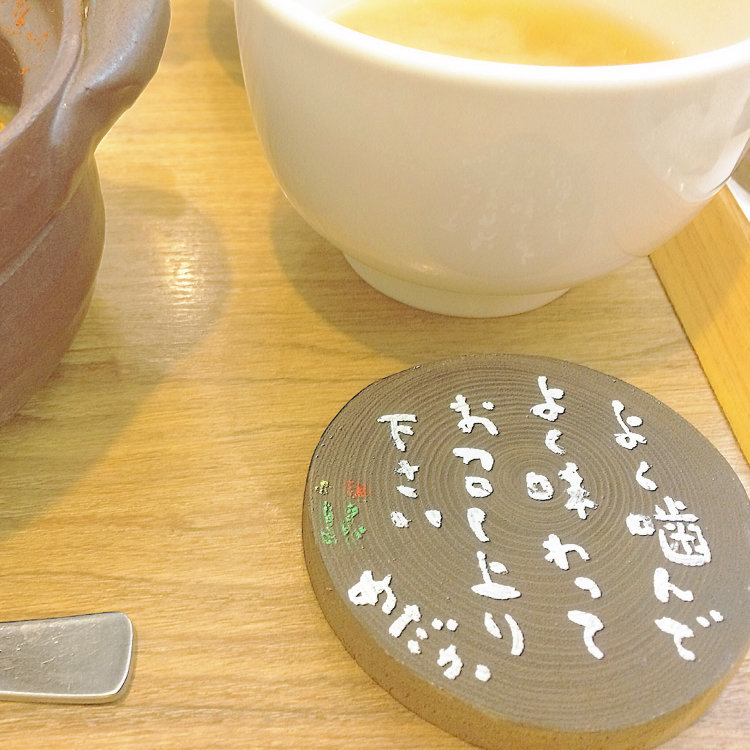 よく噛んで
よく味わって
お召し上がり
下さい。
めだか